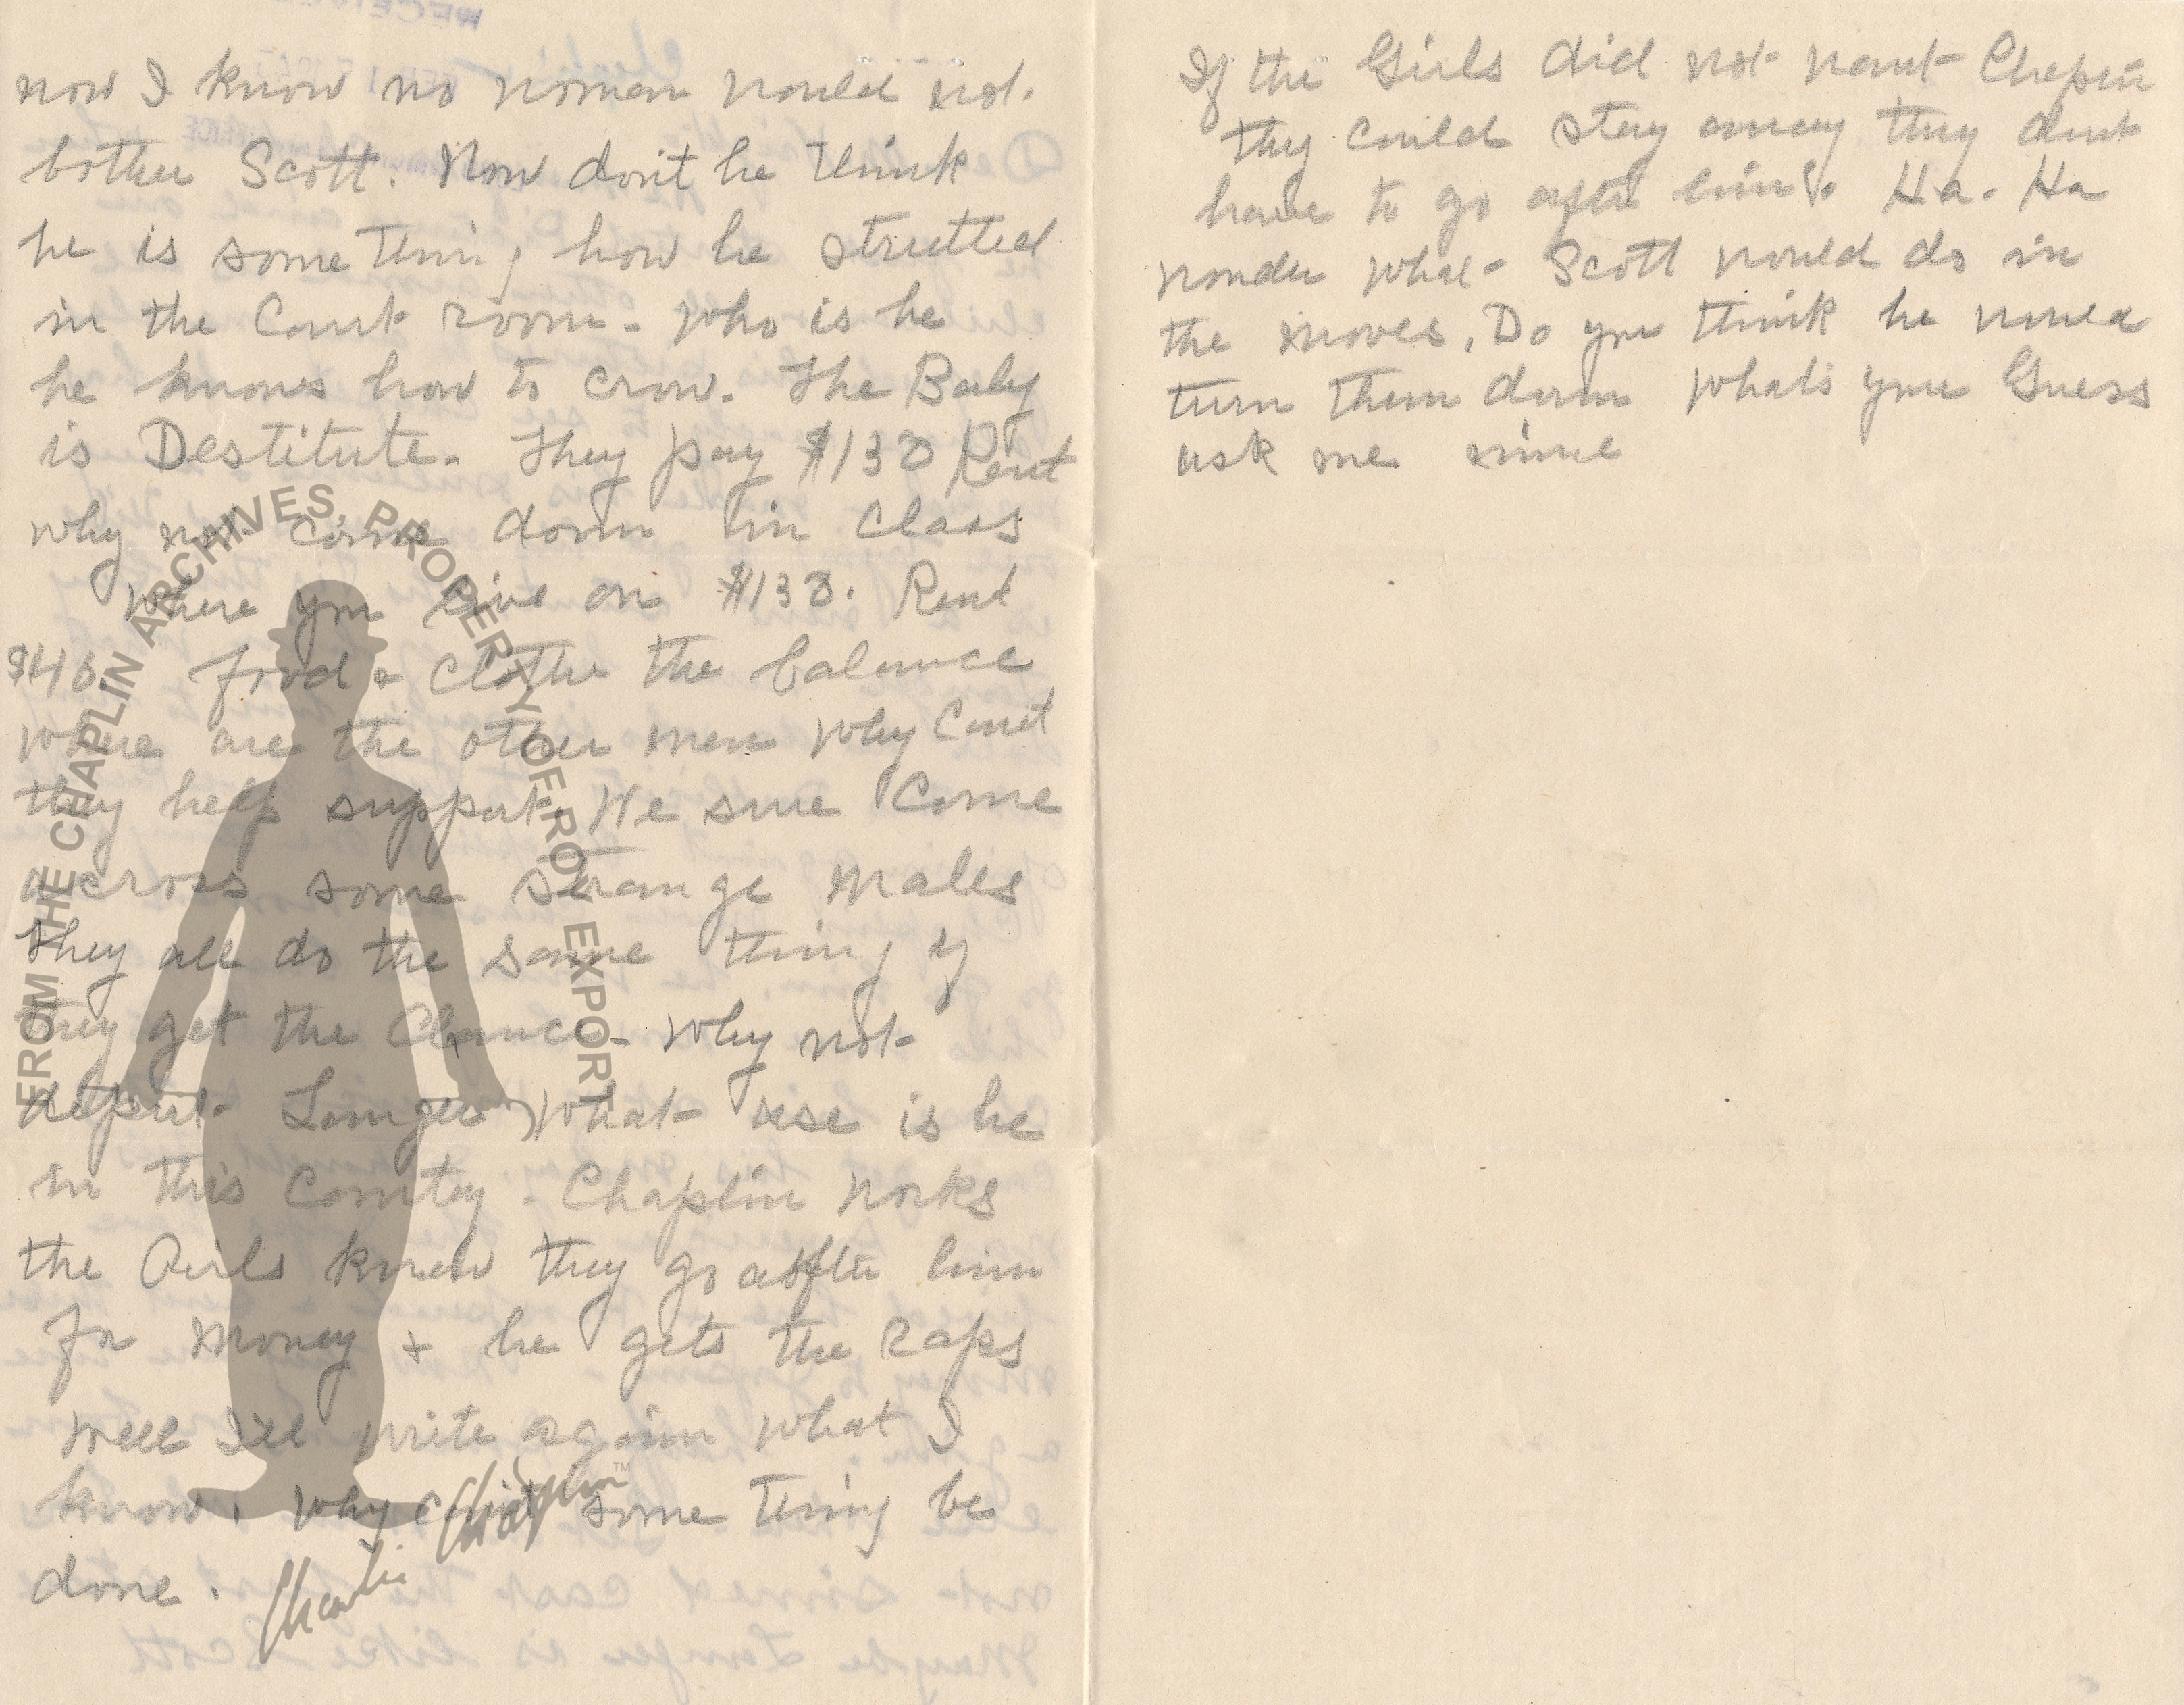 now I know no woman would not.
bother Scott. Now don't he think
he is some thing how he strutted
in the Court room - Who is he
he knows how to crow. The Baby
is Destitute. They pay $130 Rent
why not come down in class
where you live on $130. Rent
$40. food & clothe the balance
where are the other men Why Cant
they help support. We sure Come
across some strange males
They all do the same thing if
they get the Chance - Why not
deport Langer What use is he
in this Country - Chaplin works
the Girls know they go after him
for money + he gets the raps
Well I'll write again what I
know. Why can't some thing be
done.
If the Girls did not want Chapin
they could stay away they dont
have to go after him. Ha. Ha
wonder what Scott would do in
the movies. Do you think he would
turn them down whats your Guess
ask me mine
FROM THE CHAPLIN ARCHIVES, PROPERTY OF ROY EXPORT
Charlie Chaplin™